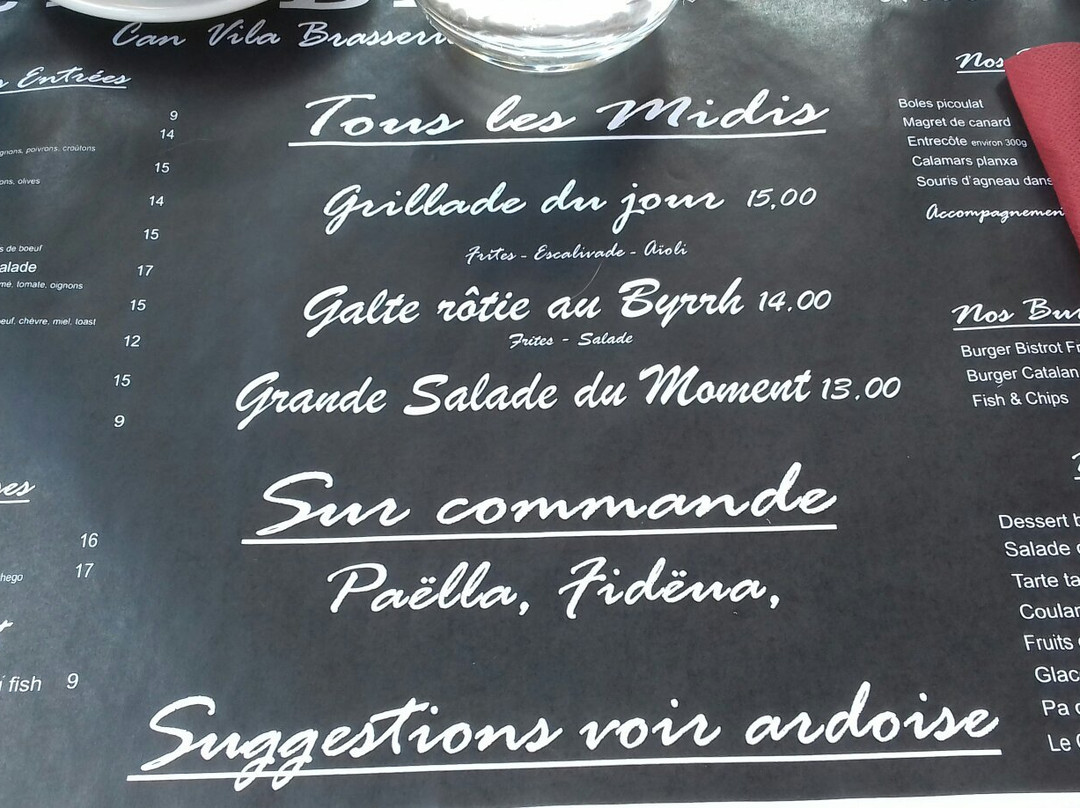 Can Vila
Entrées
9
14
poivrons, croûtons
15
olives
14
15
de boeuf
17
tomate, oignons
15
chèvre, miel, toast
12
15
9
16
17
fish 9
Tous les Midis
Grillade du jour 15,00
Frites - Escalivade - Aïoli
Galte rôtie au Byrrh 14.00
Frites - Salade
Grande Salade du Moment 13.00
Sur commande
Paëlla, Fidëua,
Suggestions voir ardoise
Nos
Boles picoulat
Magret de canard
Entrecôte environ 300g
Calamars planxa
Souris d'agneau dans
Nos
Burger Bistrot
Burger Catalan
Fish & Chips
Dessert
Salade
Tarte
Fruits
Pa
Le